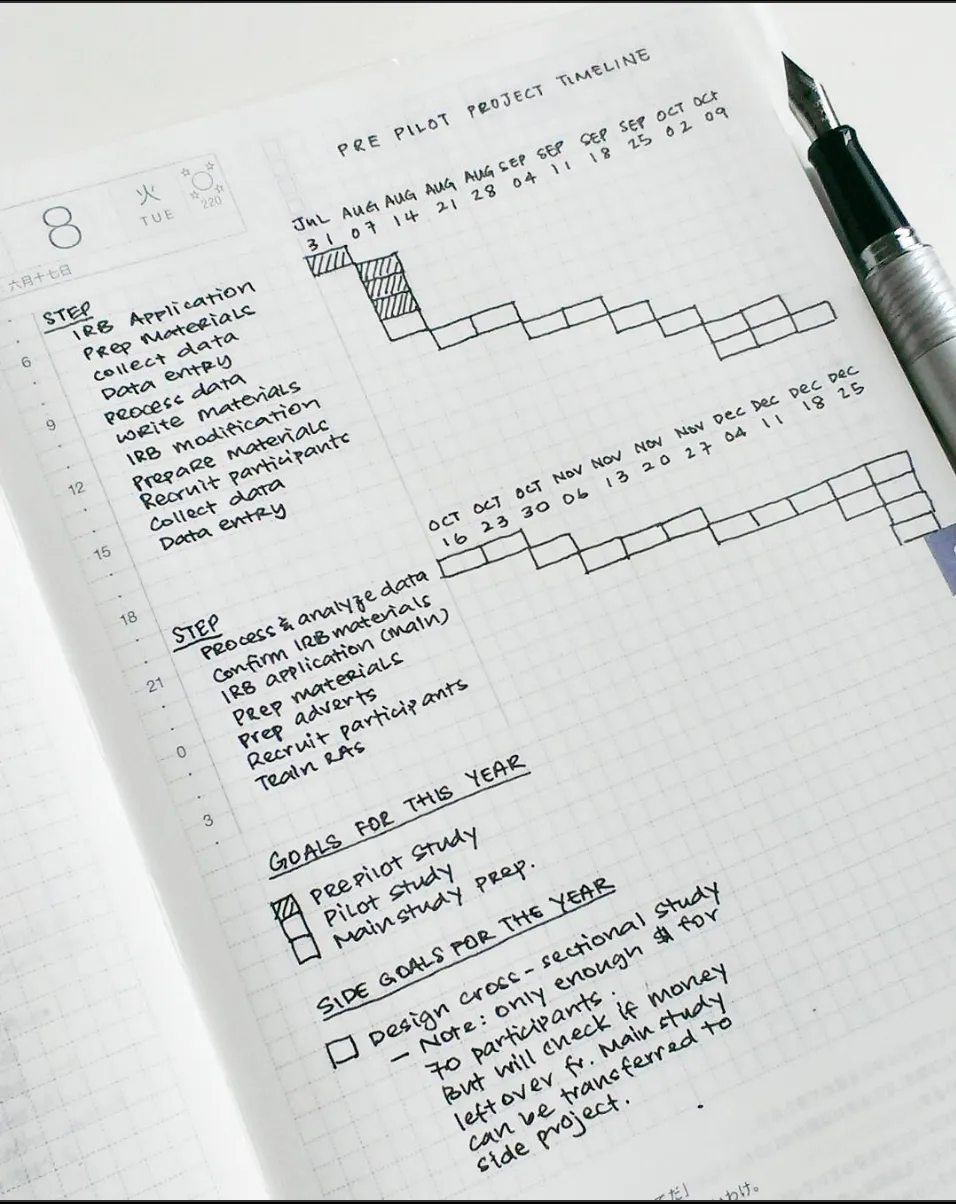 PRE PILOT PROJECT TIMELINE
8
火
TUE
220
六月十七日
JUL AUG AUG AUG AUG SEP SEP SEP SEP OCT OCT
31 07 14 21 28 04 11 18 25 02 09
STEP
IRB Application
Prep Materials
Collect data
Data entry
Process data
Write materials
IRB modification
Prepare materials
Recruit participants
Collect data
Data entry
6
9
12
15
18
21
0
3
OCT OCT OCT NOV NOV NOV NOV DEC DEC DEC DEC
16 23 30 06 13 20 27 04 11 18 25
STEP
Process & analyze data
Confirm IRB materials
IRB application (main)
Prep materials
Prep adverts
Recruit participants
Train RAs
GOALS FOR THIS YEAR
Prepilot study
Pilot study
Main study prep.
SIDE GOALS FOR THE YEAR
Design cross-sectional study
- Note: only enough $ for
70 participants.
But will check if money
left over fr. Main study
can be transferred to
side project.